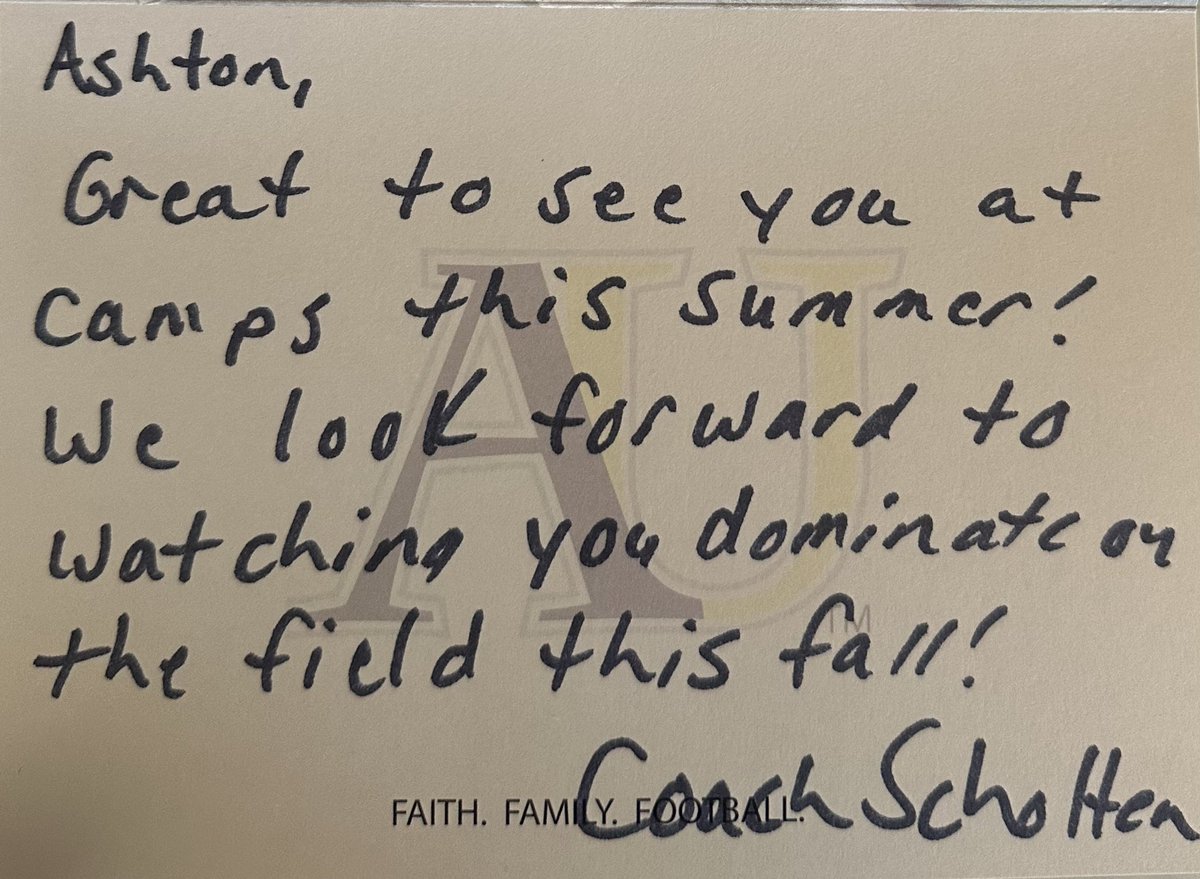 Ashton,
Great to see you at
camps this summer!
We look forward to
watching you dominate on
the field this fall!
AU
TM
FAITH. FAMILY. FOOTBALL.
Coach Scholten